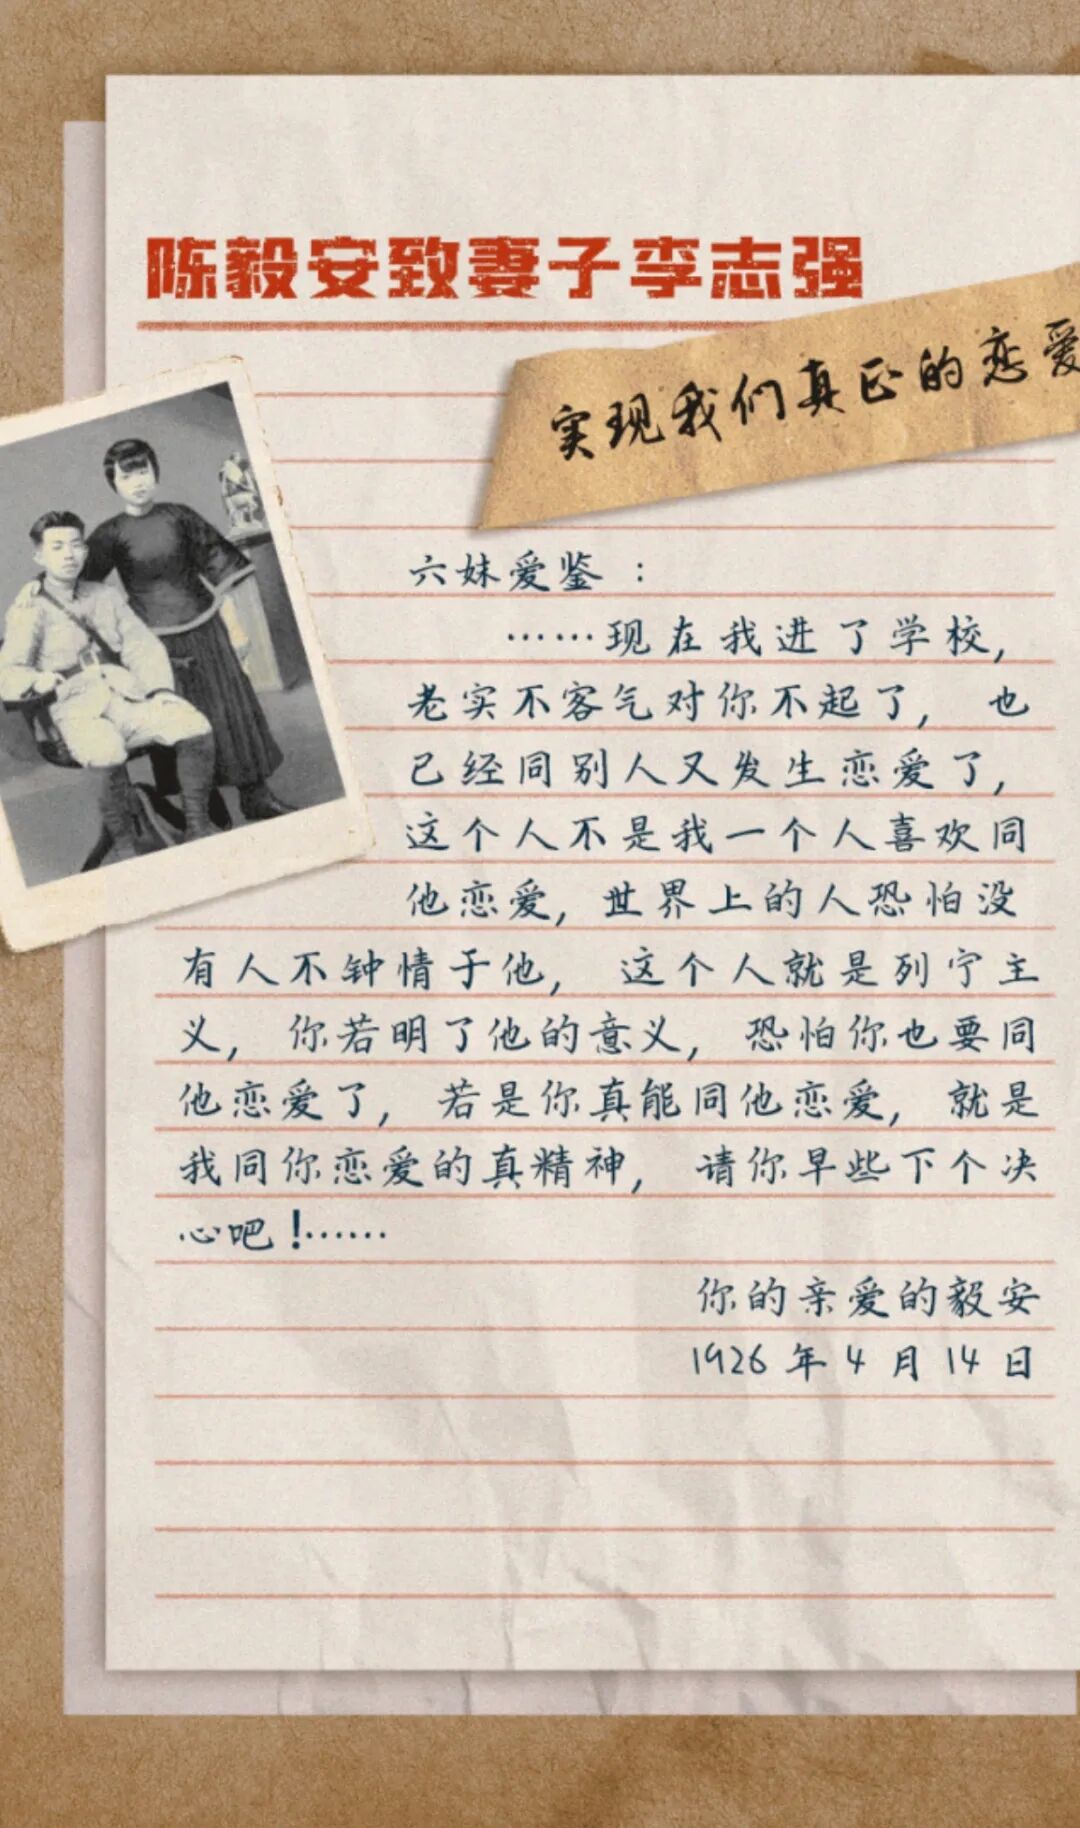 陈毅安致妻子李志强
实现我们真正的恋爱
六妹爱鉴：
……现在我进了学校，
老实不客气对你不起了，也
已经同别人又发生恋爱了，
这个人不是我一个人喜欢同
他恋爱，世界上的人恐怕没
有人不钟情于他，这个人就是列宁主
义，你若明了他的意义，恐怕你也要同
他恋爱了，若是你真能同他恋爱，就是
我同你恋爱的真精神，请你早些下个决
心吧！……
你的亲爱的毅安
1926年4月14日